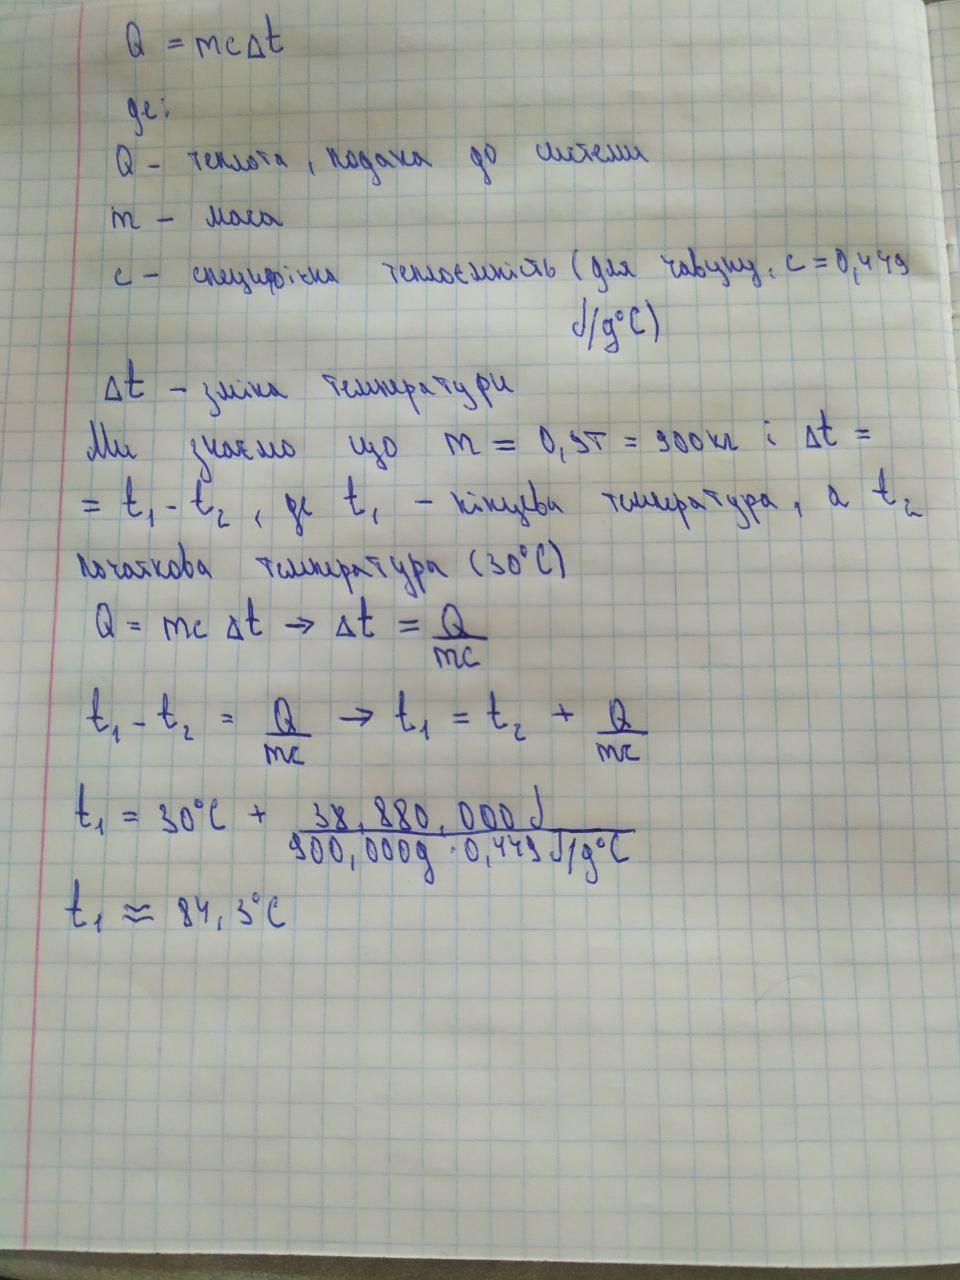 Q = mcΔt
де:
Q – теплота, подана до системи
m – маса
c – специфічна теплоємність (для чавуну, c = 0,449
J/g°C)
Δt – зміна температури
Ми знаємо що m = 0,9т = 900кг і Δt =
= t₁ - t₂, де t₁ – кінцева температура, а t₂
початкова температура (30°C)
Q = mcΔt → Δt = Q/mc
t₁ - t₂ = Q/mc → t₁ = t₂ + Q/mc
t₁ = 30°C + 38,880,000J / 900,000g · 0,449J/g°C
t₁ ≈ 84,3°C